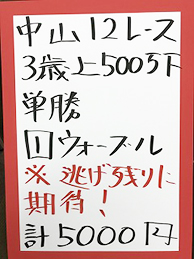 中山12レース
3歳上500万下
単勝
1ウォーブル
※逃げ残りに
期待!
計5000円